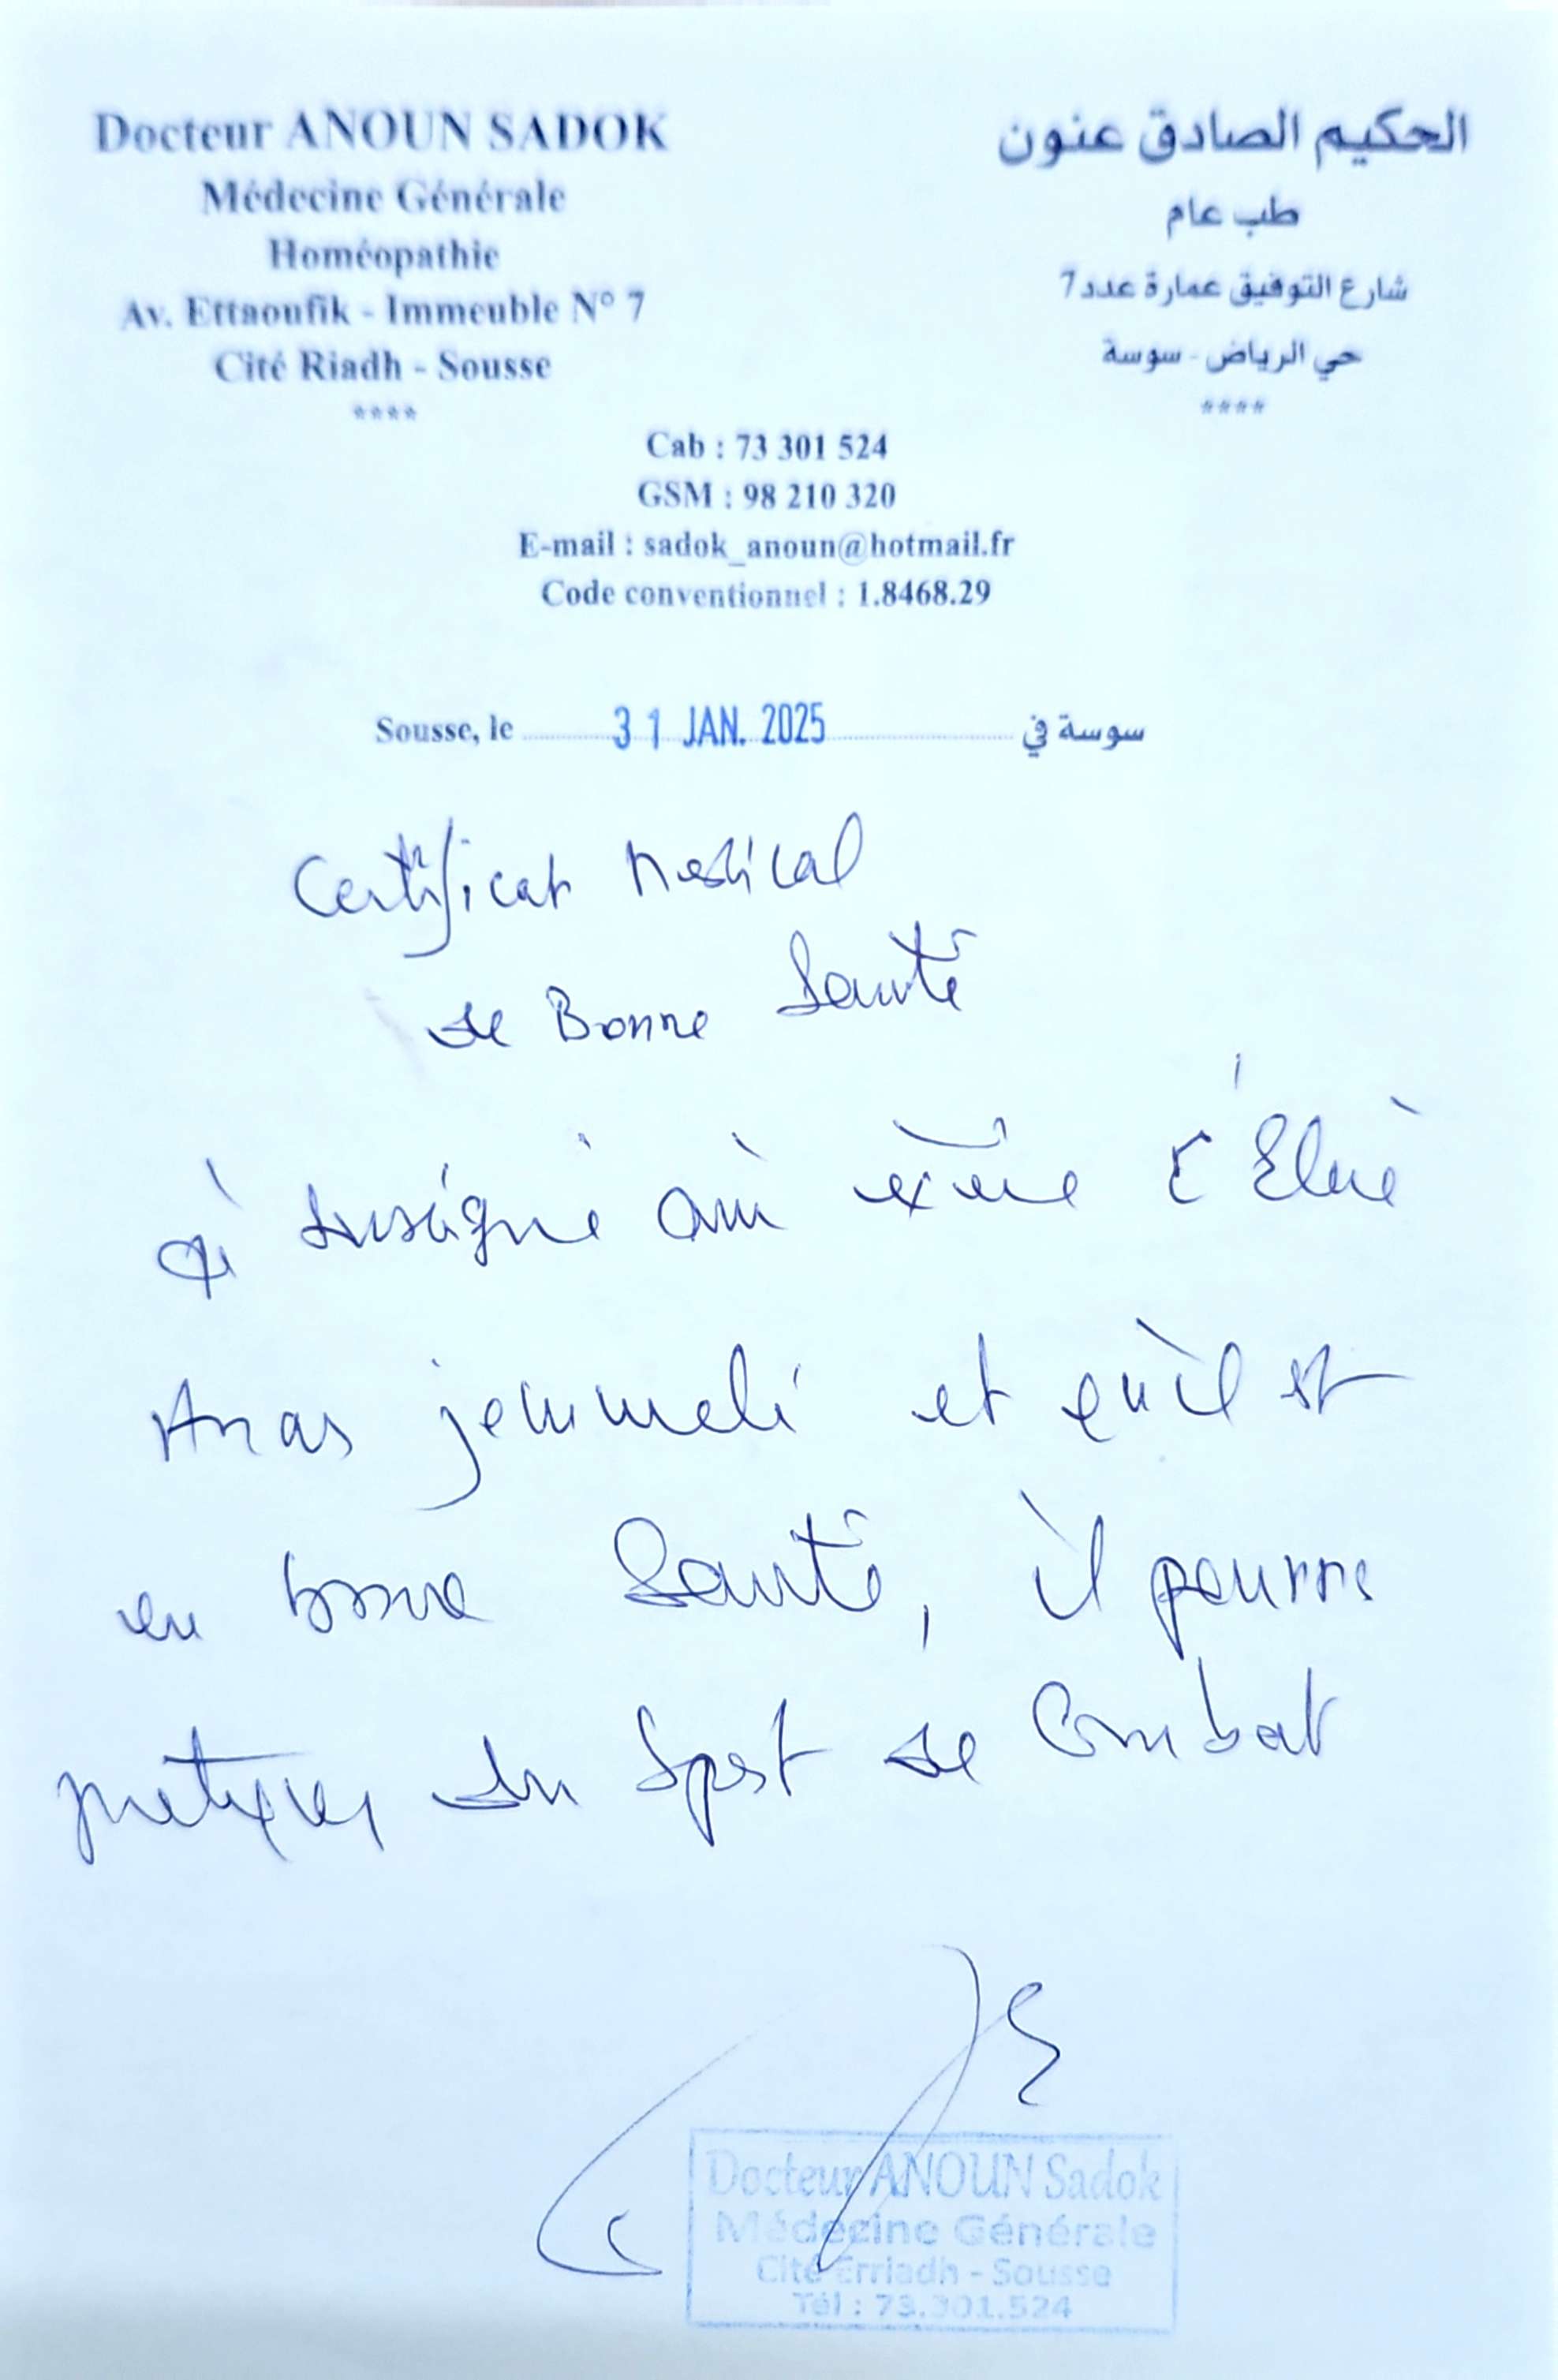 Docteur ANOUN SADOK
Médecine Générale
Homéopathie
Av. Ettaoufik - Immeuble N° 7
Cité Riadh - Sousse
****
الحكيم الصادق عنون
طب عام
شارع التوفيق عمارة عدد 7
حي الرياض - سوسة
****
Cab : 73 301 524
GSM : 98 210 320
E-mail : sadok_anoun@hotmail.fr
Code conventionnel : 1.8468.29
Sousse, le 31 JAN. 2025 سوسة في
Certificat Medical
de Bonne Santé
soussigné avoir l'Elève
Anas jemmeli et qu'il est
en bonne Santé, il pourra
pratiquer du Sport de Combat
Docteur ANOUN Sadok
Médecine Générale
Cité Erriadh - Sousse
Tél : 73.301.524